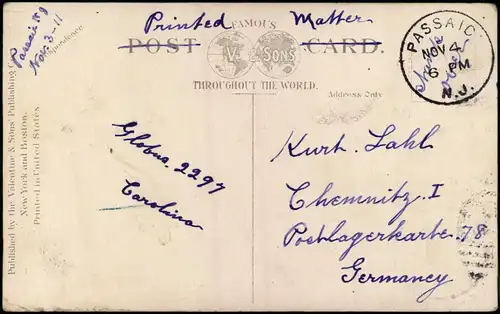 Printed Matter
FAMOUS
POST CARD.
V. & SONS
THROUGHOUT THE WORLD.
Address Only
PASSAIC
NOV 4
6 PM
N.J.
Passaic N J
Nov. 3-11
Published by the Valentine & Sons' Publishing Co.
New York and Boston.
Printed in United States
Globus 2297
Carolina
Kurt Lahl
Chemnitz. I
Postlagerkarte 78
Germaney